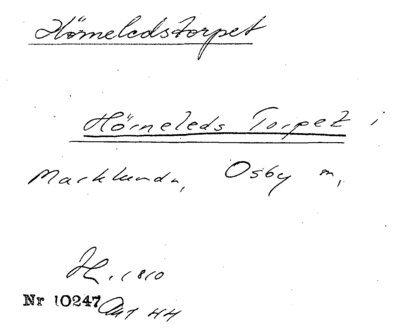 Hörneledstorpet
Hörneleds Torpet i
Marklunda, Osby m,
Hl. 1810
Nr 10247 Ant 44